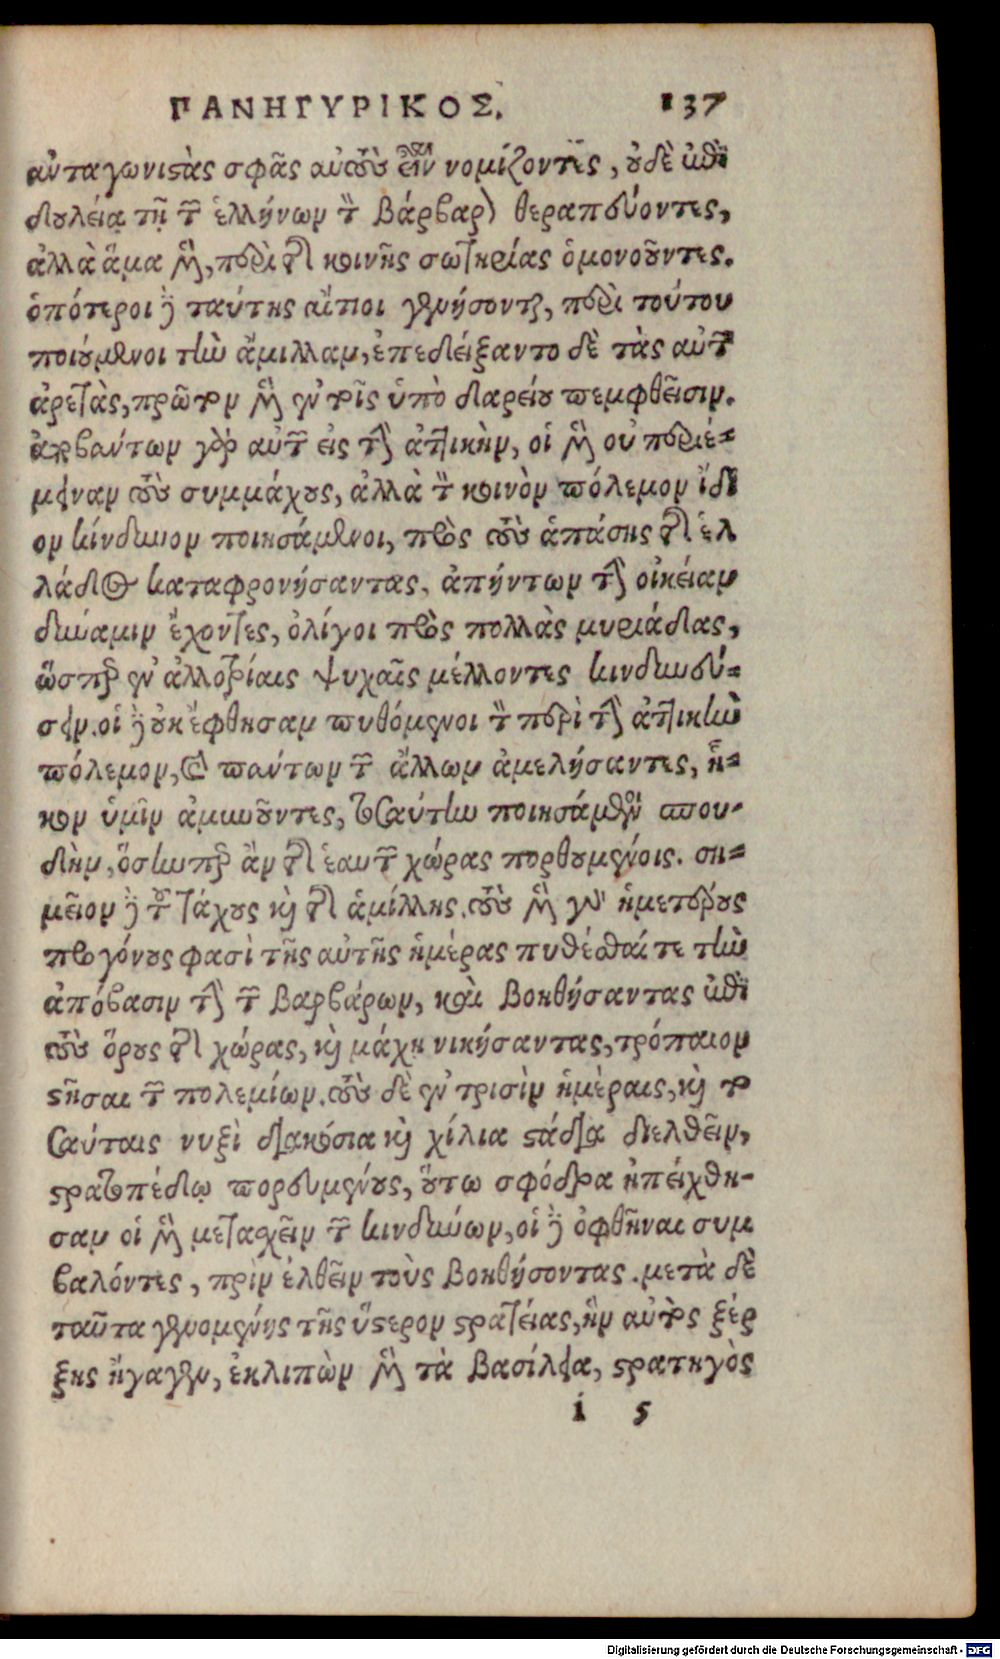 ΠΑΝΗΓΥΡΙΚΟΣ. 137
ἀνταγωνιστὰς σφᾶς αὐτοὺς εἶναι νομίζοντες, οὐδὲ ἐπὶ
δουλείᾳ τῇ τῶν ἑλλήνων τὸν βάρβαρον θεραπεύοντες,
ἀλλὰ ἅμα μὲν, περὶ τῆς κοινῆς σωτηρίας ὁμονοοῦντες.
ὁπότεροι δὲ ταύτης αἴτιοι γενήσονται, περὶ τούτου
ποιούμενοι τὴν ἅμιλλαν, ἐπεδείξαντο δὲ τὰς αὐτῶν
ἀρετὰς, πρῶτον μὲν ἐν τοῖς ὑπὸ δαρείου πεμφθεῖσιν.
ἀποβάντων γὰρ αὐτῶν εἰς τὴν ἀττικὴν, οἱ μὲν οὐ περιέ-
μειναν τοὺς συμμάχους, ἀλλὰ τὸν κοινὸν πόλεμον ἴδι
ον κίνδυνον ποιησάμενοι, πρὸς τοὺς ἁπάσης τῆς ἑλ
λάδος καταφρονήσαντας, ἀπήντων τὴν οἰκείαν
δύναμιν ἔχοντες, ὀλίγοι πρὸς πολλὰς μυριάδας,
ὥσπερ ἐν ἀλλοτρίαις ψυχαῖς μέλλοντες κινδυνεύ-
σειν. οἱ δὲ οὐκ ἔφθησαν πυθόμενοι τὸν περὶ τὴν ἀττικὴν
πόλεμον, καὶ πάντων τῶν ἄλλων ἀμελήσαντες, ἧ-
κον ὑμῖν ἀμυνοῦντες, τοσαύτην ποιησάμενοι σπου-
δὴν, ὅσηνπερ ἂν τῆς ἑαυτῶν χώρας πορθουμένης. ση-
μεῖον δὲ τοῦ τάχους καὶ τῆς ἁμίλλης. τοὺς μὲν γὰρ ἡμετέρους
προγόνους φασὶ τῆς αὐτῆς ἡμέρας πυθέσθαί τε τὴν
ἀπόβασιν τὴν τῶν βαρβάρων, καὶ βοηθήσαντας ἐπὶ
τοὺς ὅρους τῆς χώρας, καὶ μάχῃ νικήσαντας, τρόπαιον
στῆσαι τῶν πολεμίων. τοὺς δὲ ἐν τρισὶν ἡμέραις, καὶ το
σαύταις νυξὶ διακόσια καὶ χίλια στάδια διελθεῖν,
στρατοπέδῳ πορευομένους, οὕτω σφόδρα ἠπείχθη-
σαν οἱ μὲν μετασχεῖν τῶν κινδύνων, οἱ δὲ ὀφθῆναι συμ
βαλόντες, πρὶν ἐλθεῖν τοὺς βοηθήσοντας. μετὰ δὲ
ταῦτα γενομένης τῆς ὕστερον στρατείας, ἣν αὐτὸς ξέρ
ξης ἤγαγεν, ἐκλιπὼν μὲν τὰ βασίλεια, στρατηγὸς
i 5
Digitalisierung gefördert durch die Deutsche Forschungsgemeinschaft - DFG